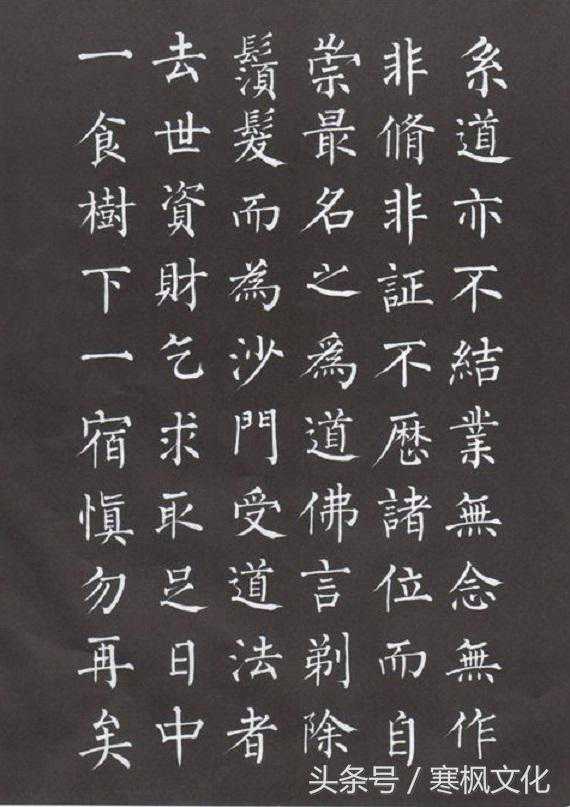 糸道亦不結業無念無作
非脩非証不歷諸位而自
崇最名之為道佛言剃除
鬚髮而為沙門受道法者
去世資財乞求取足日中
一食樹下一宿慎勿再矣
头条号 / 寒枫文化